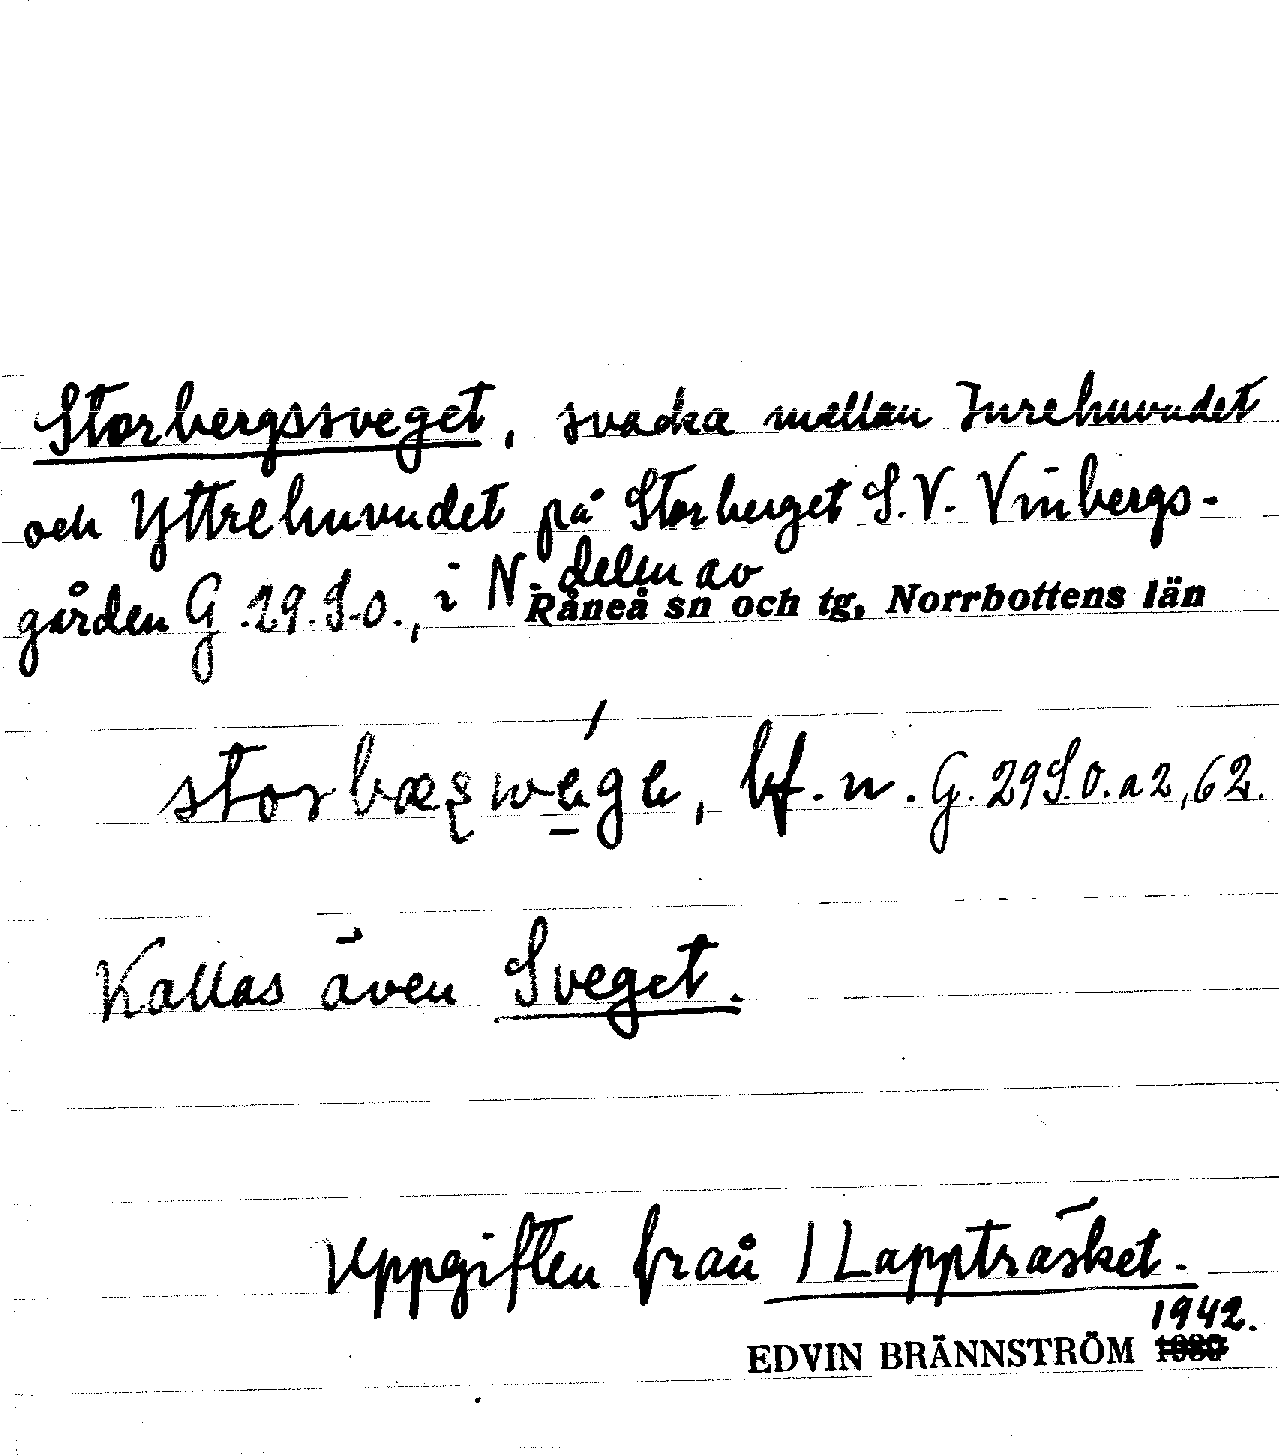 Storbergssveget, svacka mellan Inrehuvudet
och Yttrehuvudet på Storberget S.V. Vinbergs-
gården G.29.S.O., i N. delen av
Råneå sn och tg, Norrbottens län
bf. n. G.29S.O.a2,62.
Kallas även Sveget.
Uppgiften från 1 Lappträsket.
1942.
EDVIN BRÄNNSTRÖM